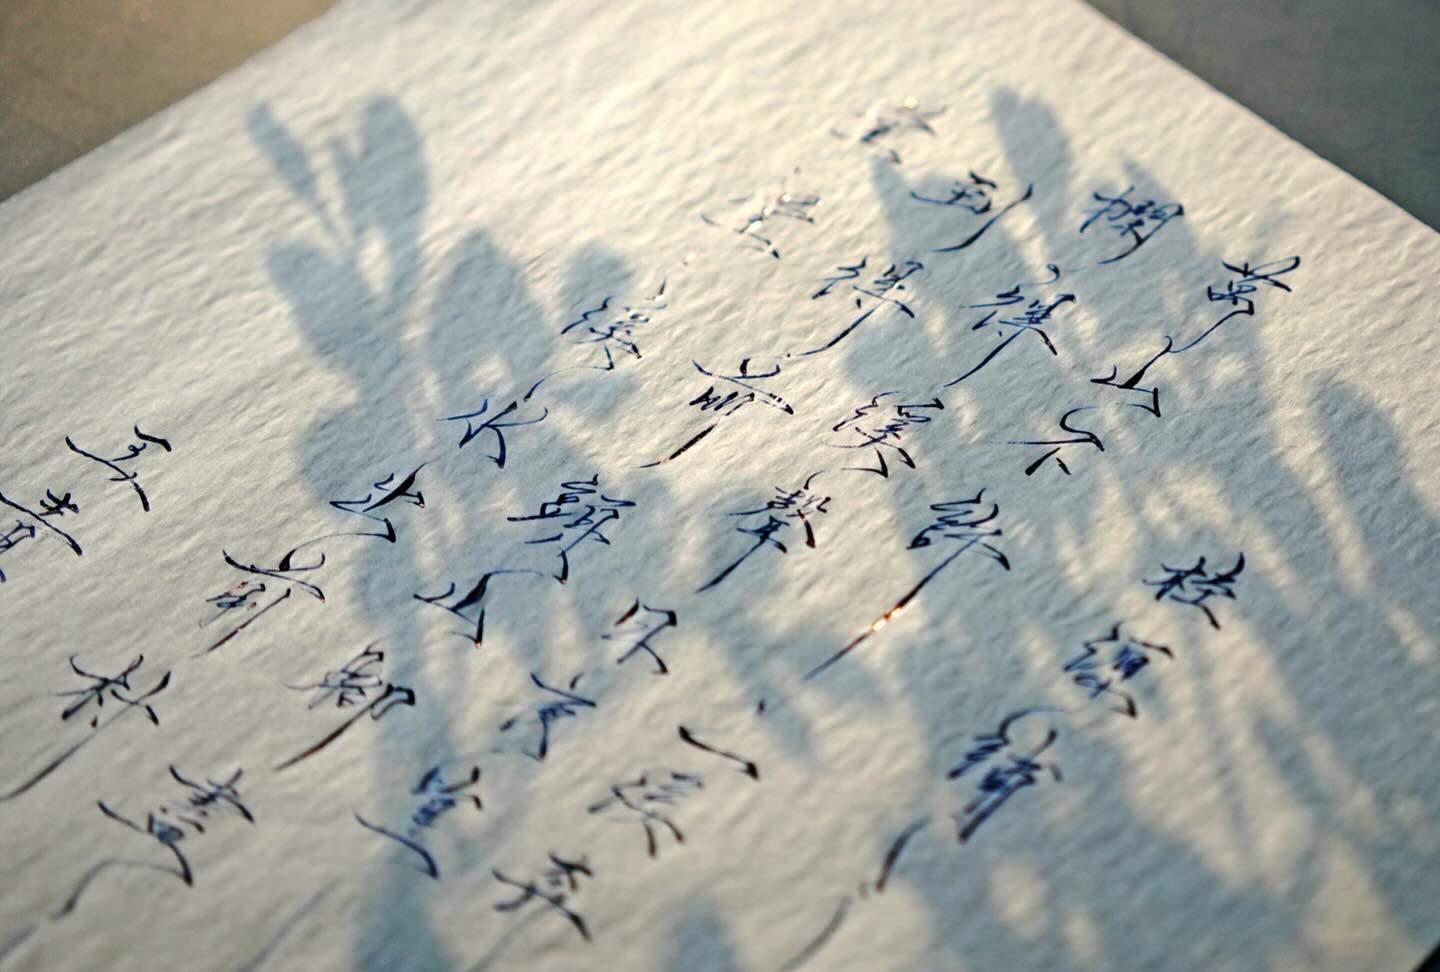 桂源鋪
萬山不許一溪奔
攔得溪聲日夜喧
到得前頭山腳盡
堂堂溪水出前村